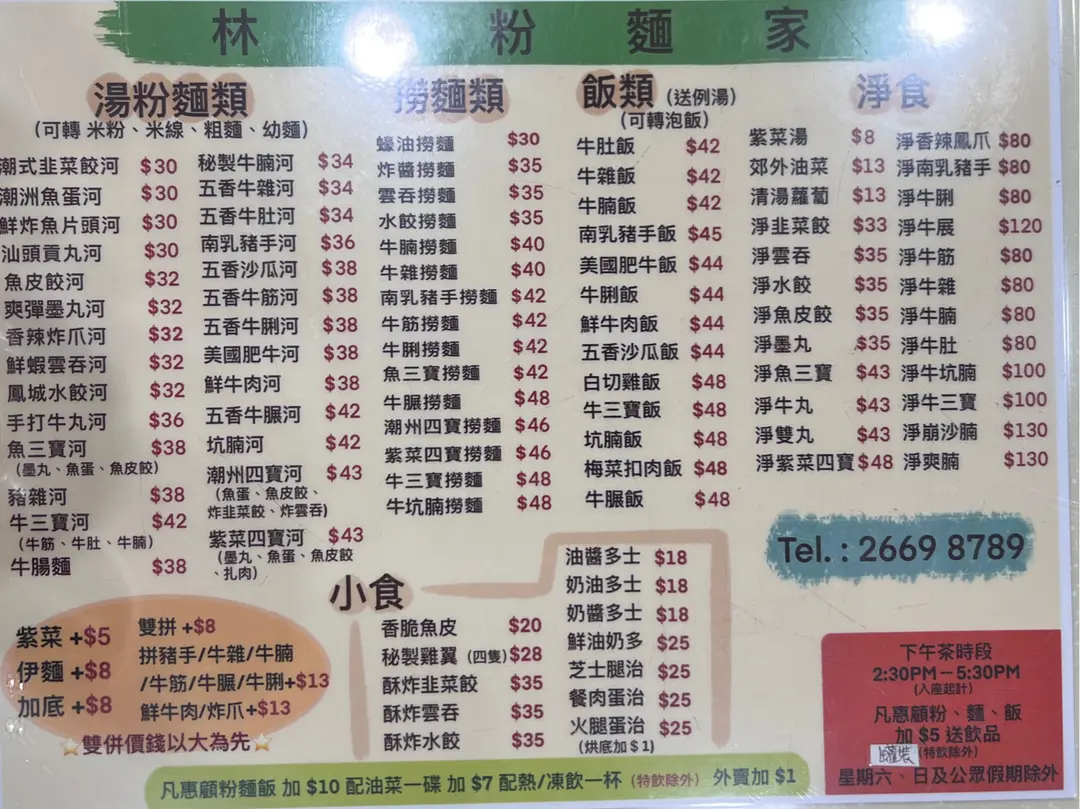 林 粉 麵 家
湯粉麵類
(可轉 米粉、米線、粗麵、幼麵)
潮式韭菜餃河 $30
潮洲魚蛋河 $30
鮮炸魚片頭河 $30
汕頭貢丸河 $30
魚皮餃河 $32
爽彈墨丸河 $32
香辣炸爪河 $32
鮮蝦雲吞河 $32
鳳城水餃河 $32
手打牛丸河 $36
魚三寶河 $38
(墨丸、魚蛋、魚皮餃)
豬雜河 $38
牛三寶河 $42
(牛筋、牛肚、牛腩)
牛腸麵 $38
秘製牛腩河 $34
五香牛雜河 $34
五香牛肚河 $34
南乳豬手河 $36
五香沙瓜河 $38
五香牛筋河 $38
五香牛脷河 $38
美國肥牛河 $38
鮮牛肉河 $38
五香牛𦟌河 $42
坑腩河 $42
潮州四寶河 $43
(魚蛋、魚皮餃、
炸韭菜餃、炸雲吞)
紫菜四寶河 $43
(墨丸、魚蛋、魚皮餃
、扎肉)
撈麵類
蠔油撈麵 $30
炸醬撈麵 $35
雲吞撈麵 $35
水餃撈麵 $35
牛腩撈麵 $40
牛雜撈麵 $40
南乳豬手撈麵 $42
牛筋撈麵 $42
牛脷撈麵 $42
魚三寶撈麵 $42
牛𦟌撈麵 $48
潮州四寶撈麵 $46
紫菜四寶撈麵 $46
牛三寶撈麵 $48
牛坑腩撈麵 $48
飯類 (送例湯)
(可轉泡飯)
牛肚飯 $42
牛雜飯 $42
牛腩飯 $42
南乳豬手飯 $45
美國肥牛飯 $44
牛脷飯 $44
鮮牛肉飯 $44
五香沙瓜飯 $44
白切雞飯 $48
牛三寶飯 $48
坑腩飯 $48
梅菜扣肉飯 $48
牛𦟌飯 $48
淨食
紫菜湯 $8
郊外油菜 $13
清湯蘿蔔 $13
淨韭菜餃 $33
淨雲吞 $35
淨水餃 $35
淨魚皮餃 $35
淨墨丸 $35
淨魚三寶 $43
淨牛丸 $43
淨雙丸 $43
淨紫菜四寶 $48
淨香辣鳳爪 $80
淨南乳豬手 $80
淨牛脷 $80
淨牛展 $120
淨牛筋 $80
淨牛雜 $80
淨牛腩 $80
淨牛肚 $80
淨牛坑腩 $100
淨牛三寶 $100
淨崩沙腩 $130
淨爽腩 $130
Tel. : 2669 8789
紫菜 +$5
伊麵 +$8
加底 +$8
雙拼 +$8
拼豬手/牛雜/牛腩
/牛筋/牛𦟌/牛脷+$13
鮮牛肉/炸爪+$13
雙併價錢以大為先
小食
香脆魚皮 $20
秘製雞翼 (四隻) $28
酥炸韭菜餃 $35
酥炸雲吞 $35
酥炸水餃 $35
油醬多士 $18
奶油多士 $18
奶醬多士 $18
鮮油奶多 $25
芝士腿治 $25
餐肉蛋治 $25
火腿蛋治 $25
(烘底加 $1)
下午茶時段
2:30PM－5:30PM
(入座起計)
凡惠顧粉、麵、飯
加 $5 送飲品
罐裝 (特飲除外)
星期六、日及公眾假期除外
凡惠顧粉麵飯 加 $10 配油菜一碟 加 $7 配熱/凍飲一杯 (特飲除外) 外賣加 $1